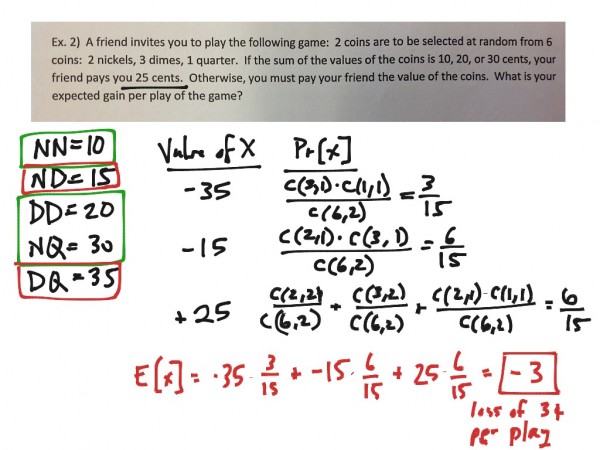 Ex. 2) A friend invites you to play the following game: 2 coins are to be selected at random from 6
coins: 2 nickels, 3 dimes, 1 quarter. If the sum of the values of the coins is 10, 20, or 30 cents, your
friend pays you 25 cents. Otherwise, you must pay your friend the value of the coins. What is your
expected gain per play of the game?
NN=10
ND=15
DD=20
NQ=30
DQ=35
Value of X Pr[x]
-35 C(3,1)·C(1,1)/C(6,2) = 3/15
-15 C(2,1)·C(3,1)/C(6,2) = 6/15
+25 C(2,2)/C(6,2) + C(3,2)/C(6,2) + C(2,1)·C(1,1)/C(6,2) = 6/15
E[x] = -35·3/15 + -15·6/15 + 25·6/15 = -3
loss of 3¢
per play